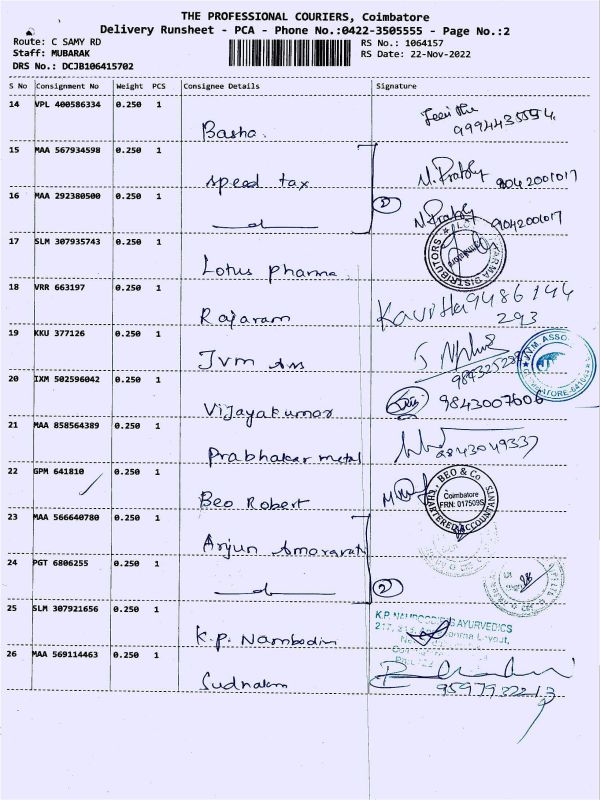 THE PROFESSIONAL COURIERS, Coimbatore
Delivery Runsheet - PCA - Phone No.:0422-3505555 - Page No.:2
Route: C SAMY RD
RS No.: 1064157
Staff: MUBARAK
RS Date: 22-Nov-2022
DRS No.: DCJB106415702
S No Consignment No Weight PCS Consignee Details Signature
14 VPL 400586334 0.250 1
Basha.
9994435594
15 MAA 567934598 0.250 1
speed tax
9042001017
16 MAA 292380500 0.250 1
2
9042001017
17 SLM 307935743 0.250 1
Lotus pharma
PHARMA DISTRIBUTORS
18 VRR 663197 0.250 1
Rajaram
Kavitha 9486144
293
19 KKU 377126 0.250 1
Jvm Ass
JVM ASSO
COIMBATORE
20 IXM 502596042 0.250 1
Vijayakumar
9843007606
21 MAA 858564389 0.250 1
Prabhakar metal
9843049337
22 GPM 641810 0.250 1
Beo Robert
BEO & Co
Coimbatore
FRN: 017509S
CHARTERED ACCOUNTANTS
23 MAA 566640780 0.250 1
Arjun Amaravati
24 PGT 6806255 0.250 1
2
25 SLM 307921656 0.250 1
K.P. Nambodiri
K.P. NAMBOODIRI'S AYURVEDICS
26 MAA 569114463 0.250 1
Sudhakar
9597932213